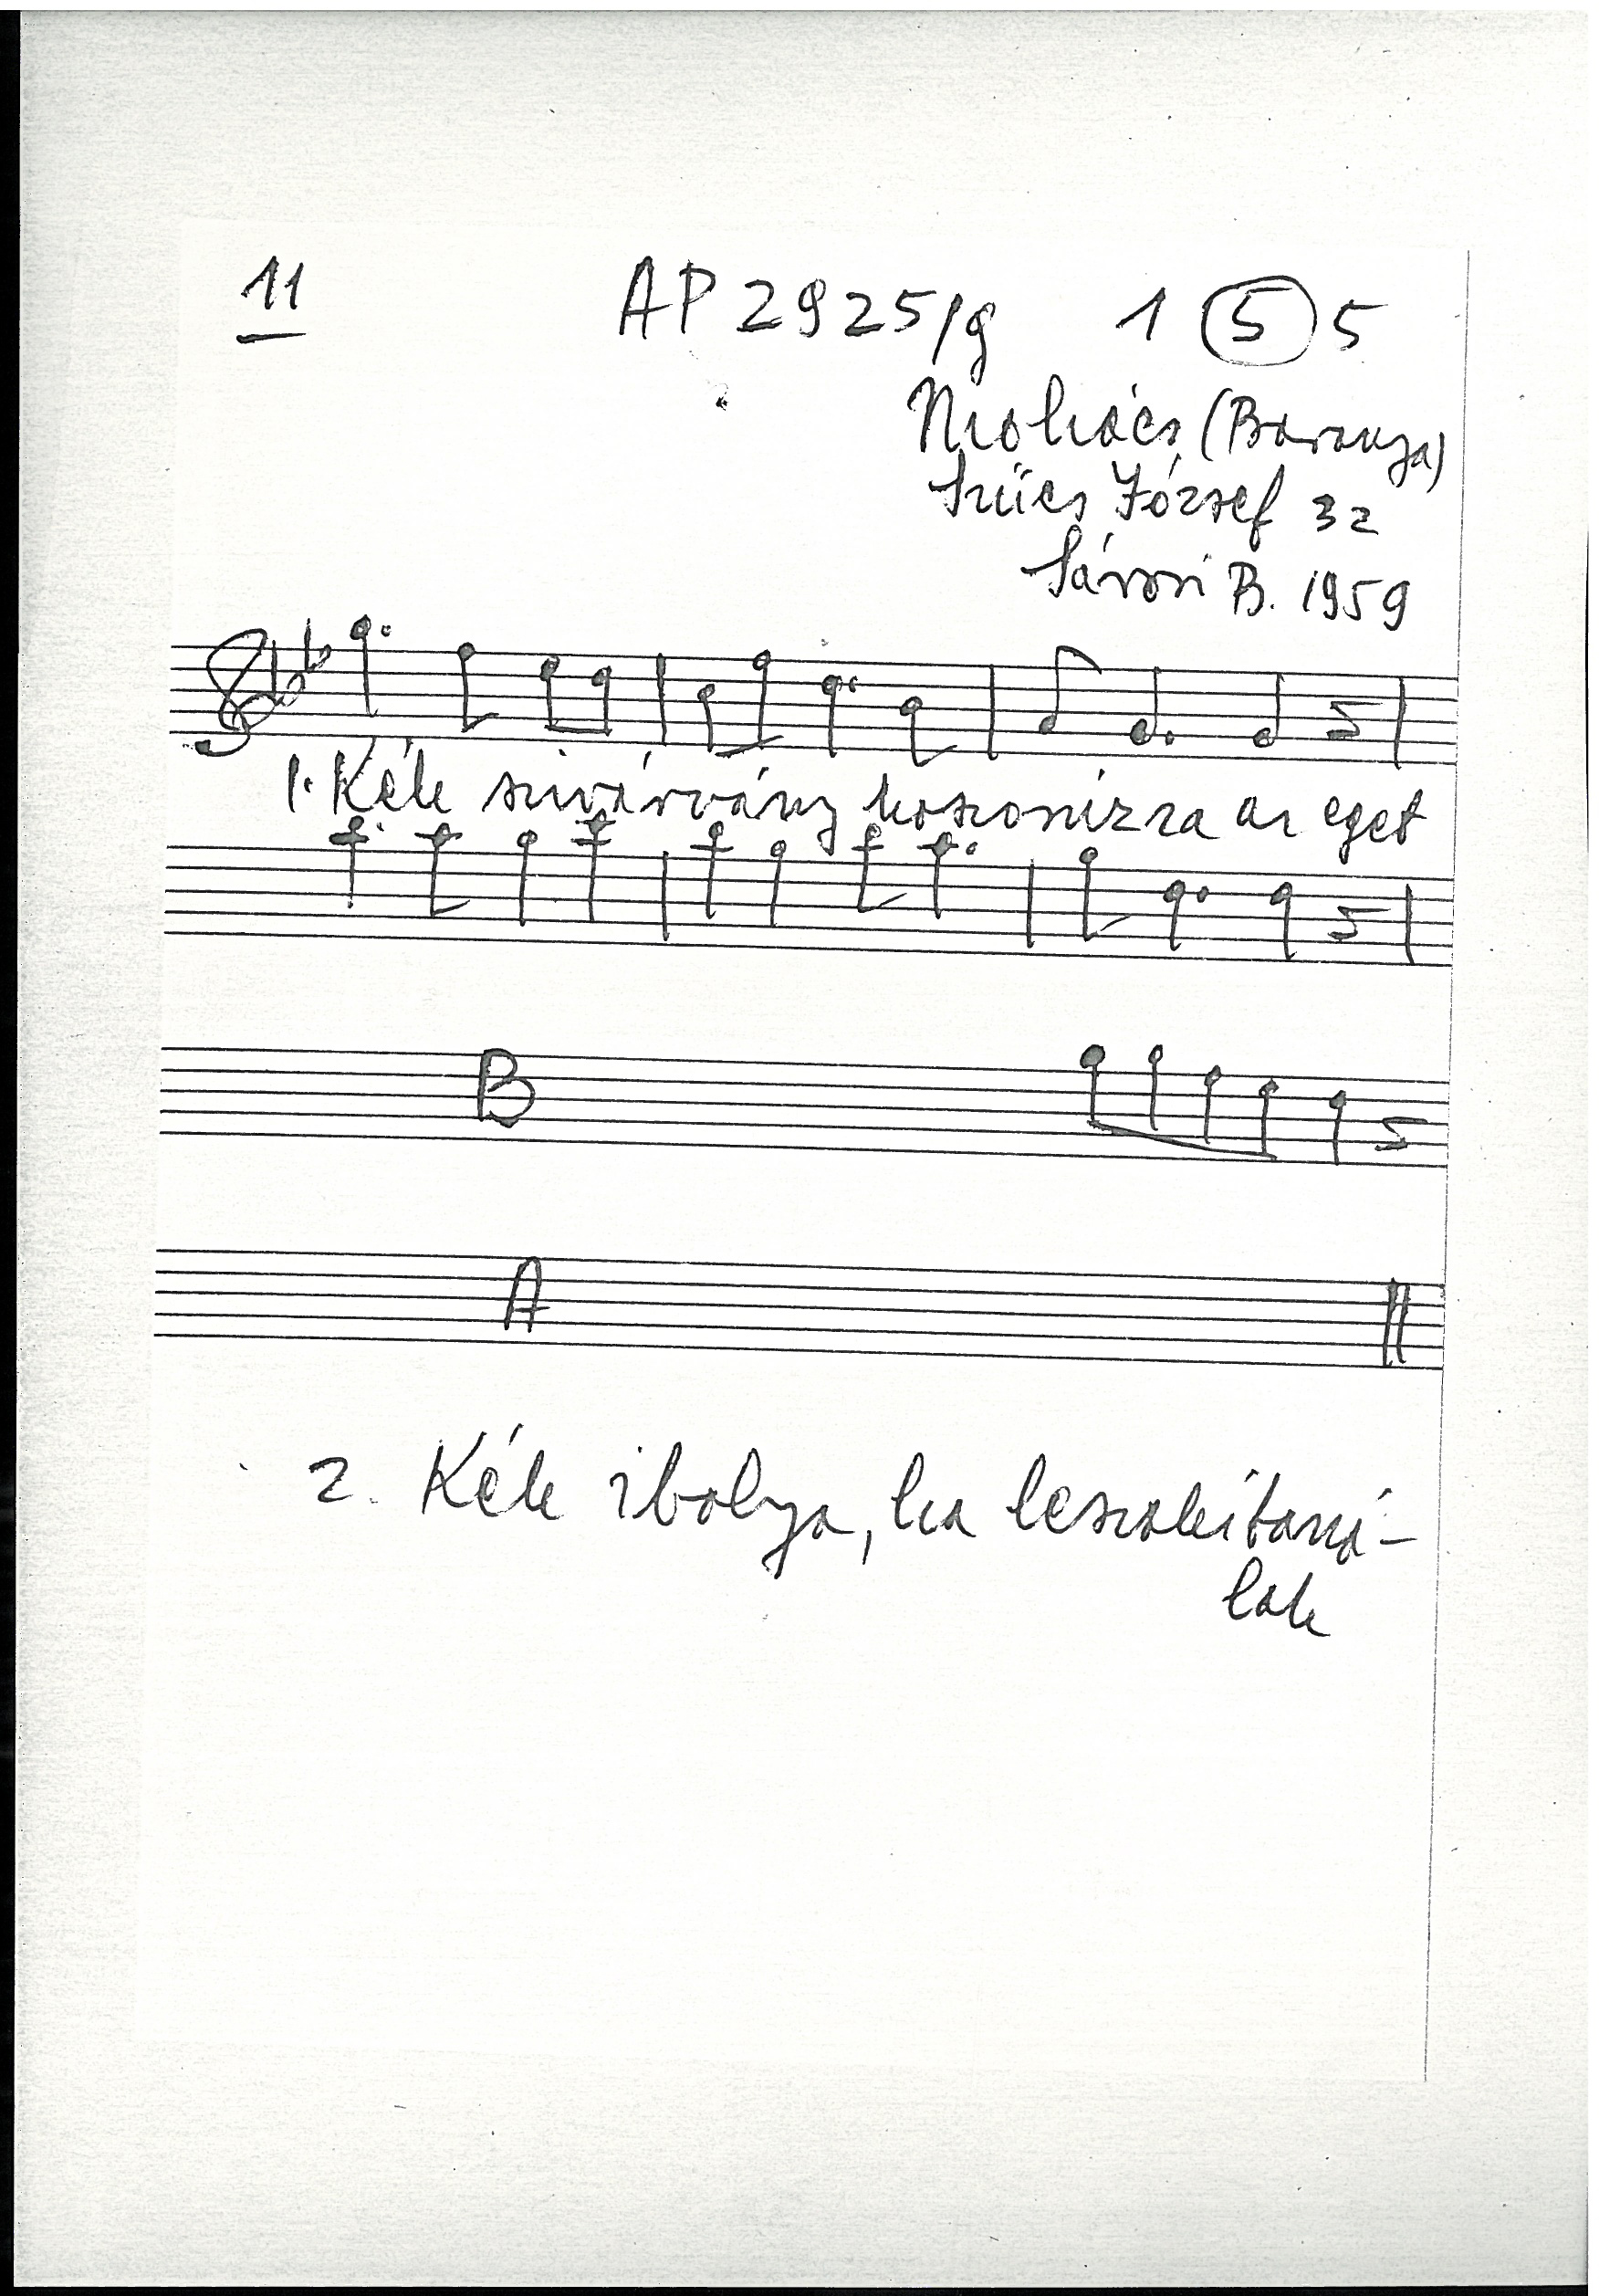 11
AP 2925/g 1 5 5
Mohács (Baranya)
Szücs József 32
Sárosi B. 1959
1. Kék szivárvány koszorúzza az eget
B
A
2. Kék ibolya, ha leszakítaná-
lak